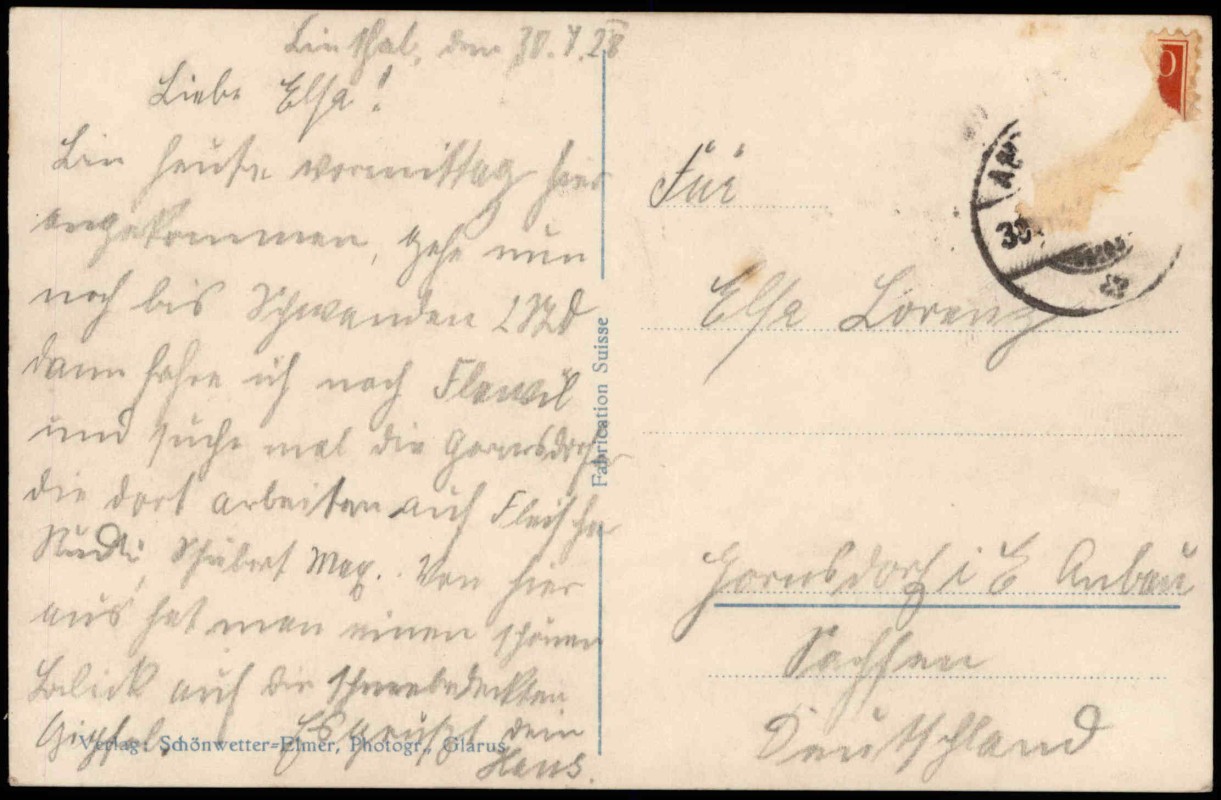 Linthal, den 30.4.28
Liebe Elsa!
Bin heute vormittag hier
angekommen, gehe nun
noch bis Schwanden
dann fahre ich nach Flawil
und suche mal die Gornsdorfer
die dort arbeiten auf Fleischer
Rudi, Schubert Max. Von hier
aus hat man einen schönen
Blick auf die schneebedeckten
Gipfel. Es grüßt dein
Hans.
Verlag: Schönwetter-Elmer, Photogr., Glarus
Fabrication Suisse
Für
Elsa Lorenz
Gornsdorf i E Anbau
Sachsen
Deutschland
30